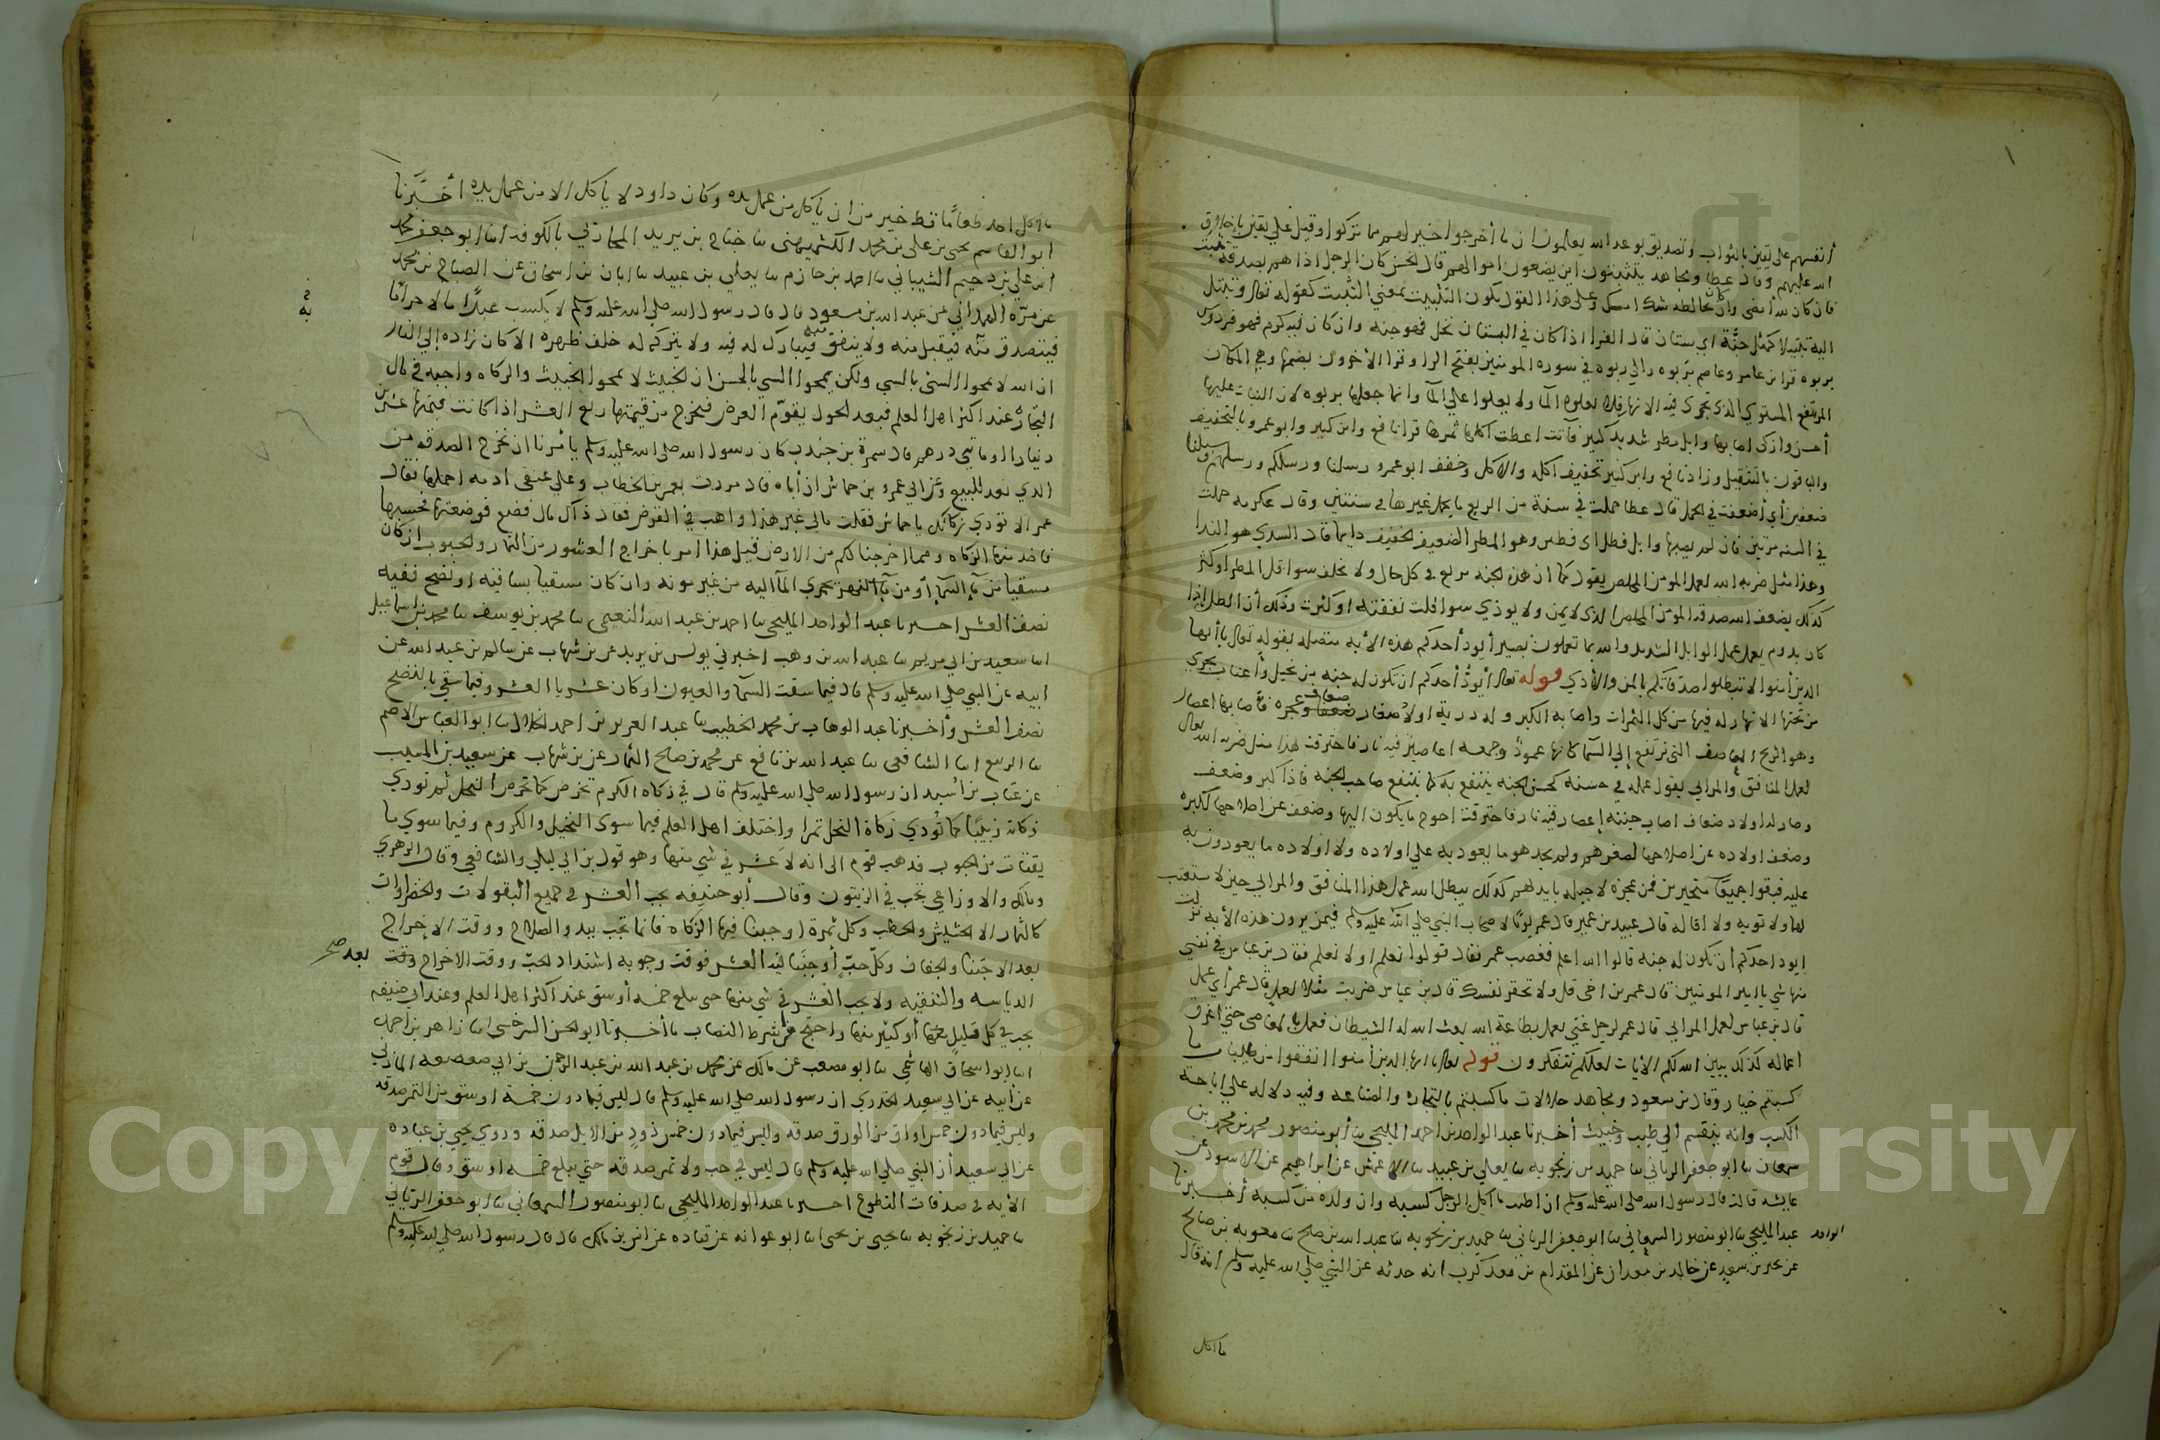 أنفسهم على يقين بالثواب وتصديق بوعد الله يعلمون ان ما أخرجوا خير لهم مما تركوا وقيل على يقين باخلاف
الله عليهم وقال عطا ومجاهد يتثبتون اين يضعون اموالهم قال الحسن كان الرجل اذا هم بصدقة تثبت
فان كان لله أمضى وان كان خالطه شك امسك وعلى هذا القول يكون التثبيت بمعني التثبت كقوله تعالى وتبتل
اليه تبتيلا كمثل جنّة اي بستان قال الفرا اذا كان في البستان نخل فهو جنة وان كان فيه كرم فهو فردوس
بربوه قرا ابن عامر وعاصم بربوه والي ربوه في سوره المومنين بفتح الرا وقرا الاخرون بضمها وهي المكان
المرتفع المستوي الذي تجري فيه الانهار فلا يعلوه الما ولا يعلوا على الما وانما جعلها بربوه لان النبات عليها
أحسن وازكى اصابها وابل مطر شديد كثير فآتت اعطت اكلها ثمرها قرا نافع وابن كثير وابو عمرو بالتخفيف
والباقون بالتثقيل وزاد نافع وابن كثير تخفيف اكله والاكل وخفف ابو عمرو رسلنا ورسلكم ورسلهم وسبلنا
ضعفين أي اضعفت في الحمل قال عطا حملت في سنة من الريع ما يحمل غيرها في سنتين وقال عكرمه حملت
في السنه مرتين فان لم يصبها وابل فطل اى فطش وهو المطر الضعيف الخفيف دايما قال السدي هو الندا
وهذا مثل ضربه الله لعمل المومن المخلص يقول كما ان هذه الجنه تريع في كل حال ولا تخلف سوا قل المطر او كثر
كذلك يضعف الله صدقة المومن المخلص الذي لا يمن ولا يوذي سوا قلت نفقته او كثرت وذلك أن الطل اذا
كان يدوم يعمل عمل الوابل الشديد والله بما تعملون بصير أيود أحدكم هذه الأيه متصله بقوله تعالى يا أيها
الذين أمنوا لا تبطلوا صدقاتكم بالمن والأذى قوله تعالى أيودُّ أحدكم ان تكون له جنه من نخيل وأعناب تجري
من تحتها الانهار له فيها من كل الثمرات واصابه الكبر وله درية اولاد صغار ضعفا ضعاف عجزه فأصابها اعصار
وهو الريح العاصف التي ترتفع إلي السما كانها عمودٌ وجمعه اعاصير فيه نار فاحترقت هذا مثل ضربه الله تعالى
لعمل المنافق والمرايي يقول عمله في حسنه كحسن الجنه ينتفع به كما ينتفع صاحب الجنه فاذا كبر وضعف
وصار له اولاد ضعاف اصاب جنته إعصار فيه نار فاحترقت احوج ما يكون اليها وضعف عن اصلاحها لكبره
وضعف اولاده عن اصلاحها لصغرهم ولم يجد هو ما يعود به علي اولاده ولا اولاده ما يعودون به
عليه فبقوا جميعًا متحيرين عجزه لا حيله بايديهم كذلك يبطل الله عمل هذا المنافق والمرايي حين لا مستعتب
لهما ولا توبه ولا اقاله قال عبيد بن عمير قال عمر يومًا لاصحاب النبي صلي الله عليه وسلم فيمن يرون هذه الأيه نزلت
ايود احدكم أن تكون له جنه قالوا الله اعلم فغضب عمر فقال قولوا نعلم او لا نعلم فقال بن عباس في نفسي
منها شي يا امير المومنين قال عمر بن اخي قل ولا تحقر نفسك قال بن عباس ضربت مثلا لعمل قال عمر أي عمل
قال بن عباس لعمل المرايي قال عمر لرجل غني يعمل بطاعة الله بعث الله له الشيطان فعمل بالمعاصي حتي اغرق
اعماله كذلك يبين الله لكم الايات لعلكم تتفكرون قوله تعالى يا ايها الدين أمنوا انفقوا من طيبات ما
كسبتم خيار وقال بن مسعود ومجاهد حلالات ما كسبتم بالتجاره والصناعه وفيه دلاله علي اباحة
الكسب وانه ينقسم الي طيب وخبيث أخبرنا عبد الواحد بن احمد المليحي ثنا أبو منصور محمد بن محمد بن
سمعان ثنا ابو جعفر الرياني ثنا حميد بن زنجويه ثنا يعلي بن عبيد ثنا الاعمش عن ابراهيم عن الاسود عن
عايشه قالت قال رسول الله صلى الله عليه وسلم ان اطيب ما اكل الرجل كسبه وان ولده من كسبه أخبرنا
عبد المليحي ثنا ابو منصور السمعاني ثنا ابو جعفر الرياني ثنا حميد بن زنجويه ثنا عبد الله بن صالح ثنا معويه بن صالح
الواحد
عن بحير بن سعيد عن خالد بن معدان عن المقدام بن معد كرب انه حدثه عن النبي صلي الله عليه وسلم انه قال
ما اكل
ما اكل احد طعامًا قط خير من ان ياكل من عمل يده وكان داود لا ياكل الا من عمل يده أخبرنا
ابو القاسم يحيى بن علي بن محمد الكشميهني ثنا جناح بن يزيد المحاربي بالكوفه انا ابو جعفر محمد
ابن علي بن دحيم الشيباني ثنا احمد بن حازم ثنا يعلي بن عبيد ثنا ابان بن اسحاق عن الصباح بن محمد
عن مرّه الهمداني عن عبد الله بن مسعود قال قال رسول الله صلي الله عليه وسلم لا يكسب عبدًا مالا حرامًا
فيتصدق منه فيقبل منه ولا ينفق منه فيبارك له فيه ولا يتركه خلف ظهره الا كان زاده إلي النار
ان الله لا يمحوا السي بالسي ولكن يمحوا السي بالحسن ان الخبيث لا يمحوا الخبيث والزكاه واجبه في مال
التجارة عند اكثر اهل العلم فبعد الحول يقوّم العرض فيخرج من قيمتها ربع العشر اذا كانت قيمتها عشرين
دينارا او مايتي درهم قال سمرة بن جندب كان رسول الله صلى الله عليه وسلم يأمرنا ان نخرج الصدقه من
الذي نعد للبيع وعن ابي عمرو بن حماس ان أباه قال مررت بعمر بن الخطاب وعلي عنقي ادمه احملها فقال
عمر الا تودي زكاتك يا حماس فقلت مالى غير هذا واهب في القرض فقال ذاك مال فضع فوضعتها فحسبها
فاخذ منها الزكاه ومما اخرجنا لكم من الارض قيل هذا امر باخراج العشور من الثمار والحبوب ان كان
مسقيا من ماء السماء أو من ماء النهر تجري الما اليه من غير مونه وان كان مسقيا بساقيه او نضح نفيه
نصف العشر اخبرنا عبد الواحد المليحي ثنا احمد بن عبد الله النعيمي ثنا محمد بن يوسف ثنا محمد بن اسماعيل
انا سعيد بن ابي مريم ثنا عبد الله بن وهب اخبرني يونس بن يزيد عن بن شهاب عن سالم بن عبد الله عن
ابيه عن النبي صلي الله عليه وسلم قال فيما سقت السما والعيون او كان عشريا العشر وفيما سقي بالنضح
نصف العشر وأخبرنا عبد الوهاب بن محمد الخطيب ثنا عبد العزيز بن احمد الخلال ثنا ابو العباس الاصم
ثنا الربيع انا الشافعي ثنا عبد الله بن نافع عن محمد بن صالح التمار عن بن شهاب عن سعيد بن المسيب
عن عتاب بن أسيد ان رسول الله صلي الله عليه وسلم قال في زكاه الكرم تخرص كما تخرص النخل ثم تودي
زكاته زبيبًا كما تُودي زكاة النخل تمرا واختلف اهل العلم فيما سوى النخيل والكروم وفيما سوي ما
يقتات من الحبوب فدهب قوم الى انه لا عشر في شي منها وهو قول بن ابي ليلي والشافعي وقال الزهري
ومالك والاوزاعي تجب في الزيتون وقال أبو حنيفه يجب العشر في جميع البقولات والخضراوات
كالثمار الا الحشيش والحطب وكل ثمرة اوجبنا فيها الزكاه فانما تجب ببدو الصلاح ووقت الاخراج
بعد الاجتنا والجفاف وكلّ حبّ أوجبنا فيه العشر فوقت وجوبه اشتداد الحبّ ووقت الاخراج وقت بعد صح
الدياسه والتنقيه ولا يجب العشر في شي منها حتى يبلغ خمسه أوسق عند اكثر اهل العلم وعند ابي حنيفه
يجب في كل قليل منها أو كثير منها واحتج من شرط النصاب ما أخبرنا ابو الحسن السرخسي انا زاهر بن احمد
انا ابو اسحاق الهاشمي ثنا ابو مصعب عن مالك عن محمد بن عبد الله بن عبد الرحمن بن ابي صعصعه المازني
عن أبيه عن ابي سعيد الخدري ان رسول الله صلى الله عليه وسلم قال ليس فيما دون خمسة اوسق من التمر صدقه
وليس فيما دون خمس اواق من الورق صدقه وليس فيما دون خمس ذود من الابل صدقه وروي يحيي بن عباده
عن ابي سعيد أن النبي صلي الله عليه وسلم قال ليس في حب ولا تمر صدقه حتي يبلغ خمسه اوسق وقال قوم
الأيه في صدقات التطوع اخبرنا عبد الواحد المليحي ثنا ابو منصور السمعاني ثنا ابو جعفر الرياني
ثنا حميد بن زنجويه ثنا يحيى بن يحيى انا ابو عوانه عن قتاده عن انس بن مالك قال قال رسول الله صلي الله عليه وسلم
Copyright © King Saud University